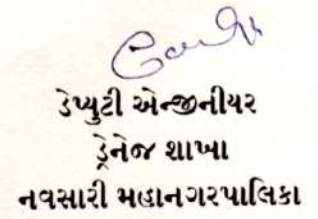 ડેપ્યુટી એન્જીનીયર
ડ્રેનેજ શાખા
નવસારી મહાનગરપાલિકા